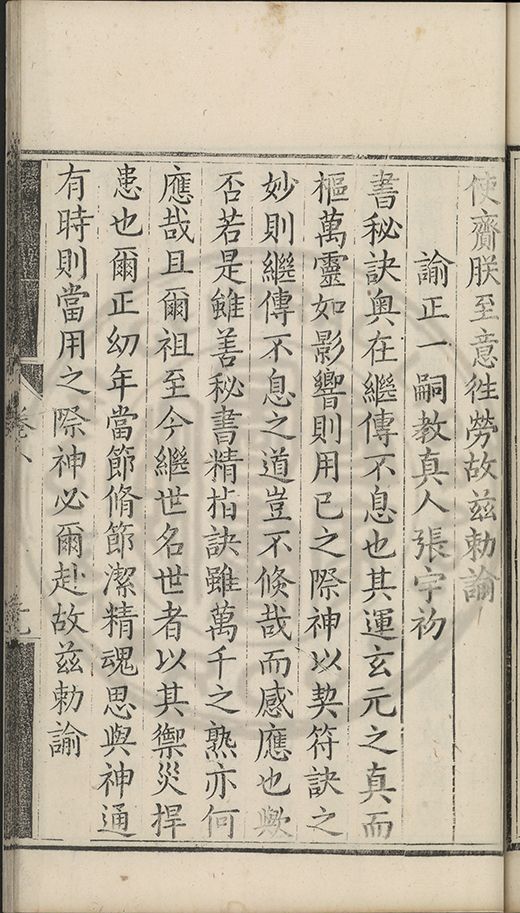 使齎朕至意徃勞故兹勅諭
諭正一嗣教真人張宇初
書秘訣奥在繼傳不息也其運玄元之真而
樞萬靈如影響則用已之際神以契符訣之
妙則繼傳不息之道豈不倏哉而感應也歟
否若是雖善秘書精㧖訣雖萬千之熟亦何
應哉且爾祖至今繼世名世者以其禦災捍
患也爾正幼年當節脩節潔精魂思與神通
有時則當用之際神必爾赴故兹勅諭
卷八